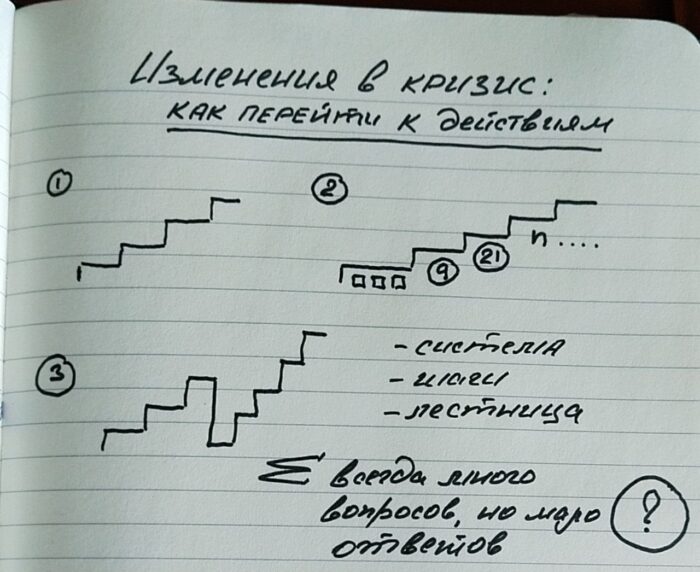 Изменения в кризис:
как перейти к действиям
1
2
9
21
n ....
3
- система
- шаги
- лестница
Σ всегда много
вопросов, но мало
ответов
?